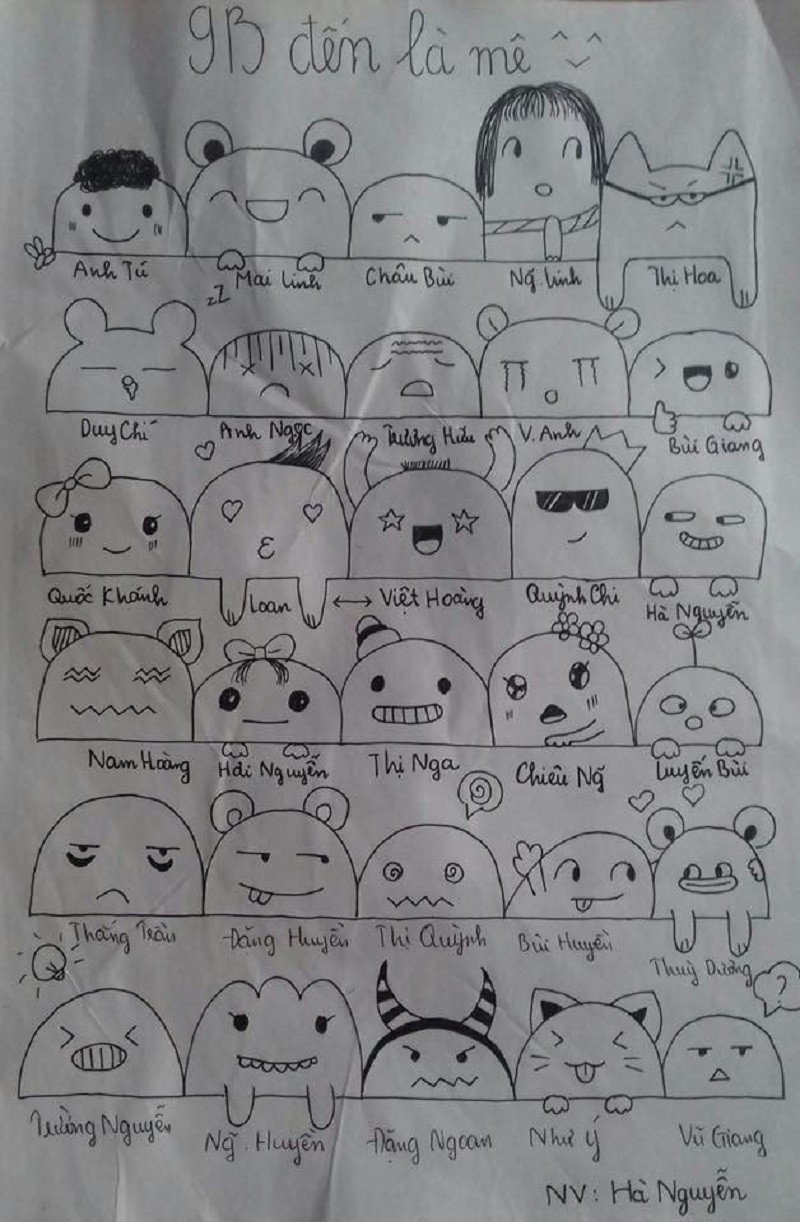 9B đến là mê ^‿^
Anh Tú
zZ Mai Linh
Châu Bùi
Ng̃. Linh
Thị Hoa
Duy Chí
Anh Ngọc
Trương Hiếu
V. Anh
Bùi Giang
Quốc Khánh
Loan
↔ Việt Hoàng
Quỳnh Chi
Hà Nguyễn
Nam Hoàng
Hải Nguyễn
Thị Nga
Chiêu Ng̃
Luyến Bùi
Thắng Trần
Đặng Huyền
Thị Quỳnh
Bùi Huyền
Thuỳ Dương
?
Trường Nguyễn
Ng̃. Huyền
Đặng Ngoan
Như Ý
Vũ Giang
NV: Hà Nguyễn